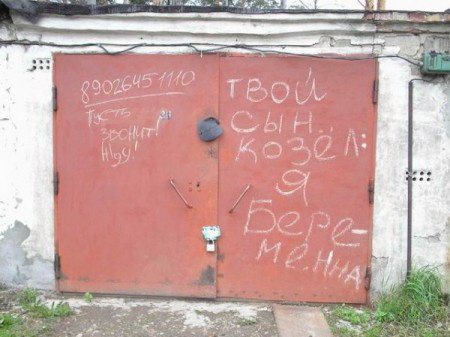 89026451110
Пусть
звонит!
Жду!
твой
сын..
козёл:
я
Бере-
менна